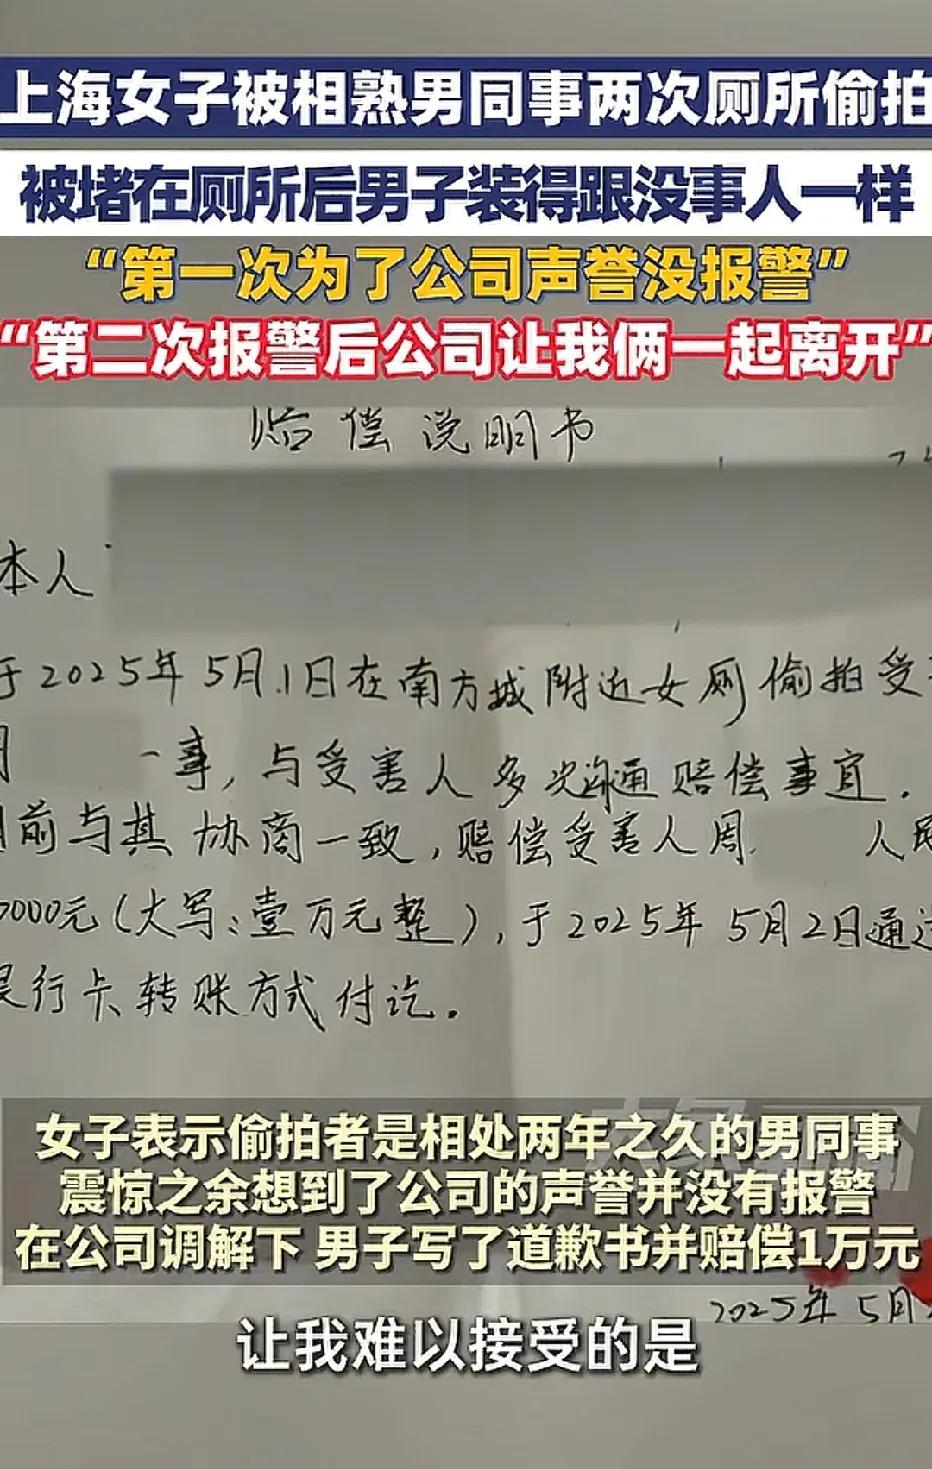 上海女子被相熟男同事两次厕所偷拍
被堵在厕所后男子装得跟没事人一样
“第一次为了公司声誉没报警”
“第二次报警后公司让我俩一起离开”
赔偿说明书
本人
于2025年5月1日在南方城附近女厕偷拍受
一事，与受害人多次沟通赔偿事宜.
前与其协商一致，赔偿受害人周 人民
0000元(大写:壹万元整)，于2025年5月2日通过
银行卡转账方式付讫.
女子表示偷拍者是相处两年之久的男同事
震惊之余想到了公司的声誉并没有报警
在公司调解下 男子写了道歉书并赔偿1万元
2025年5月
让我难以接受的是